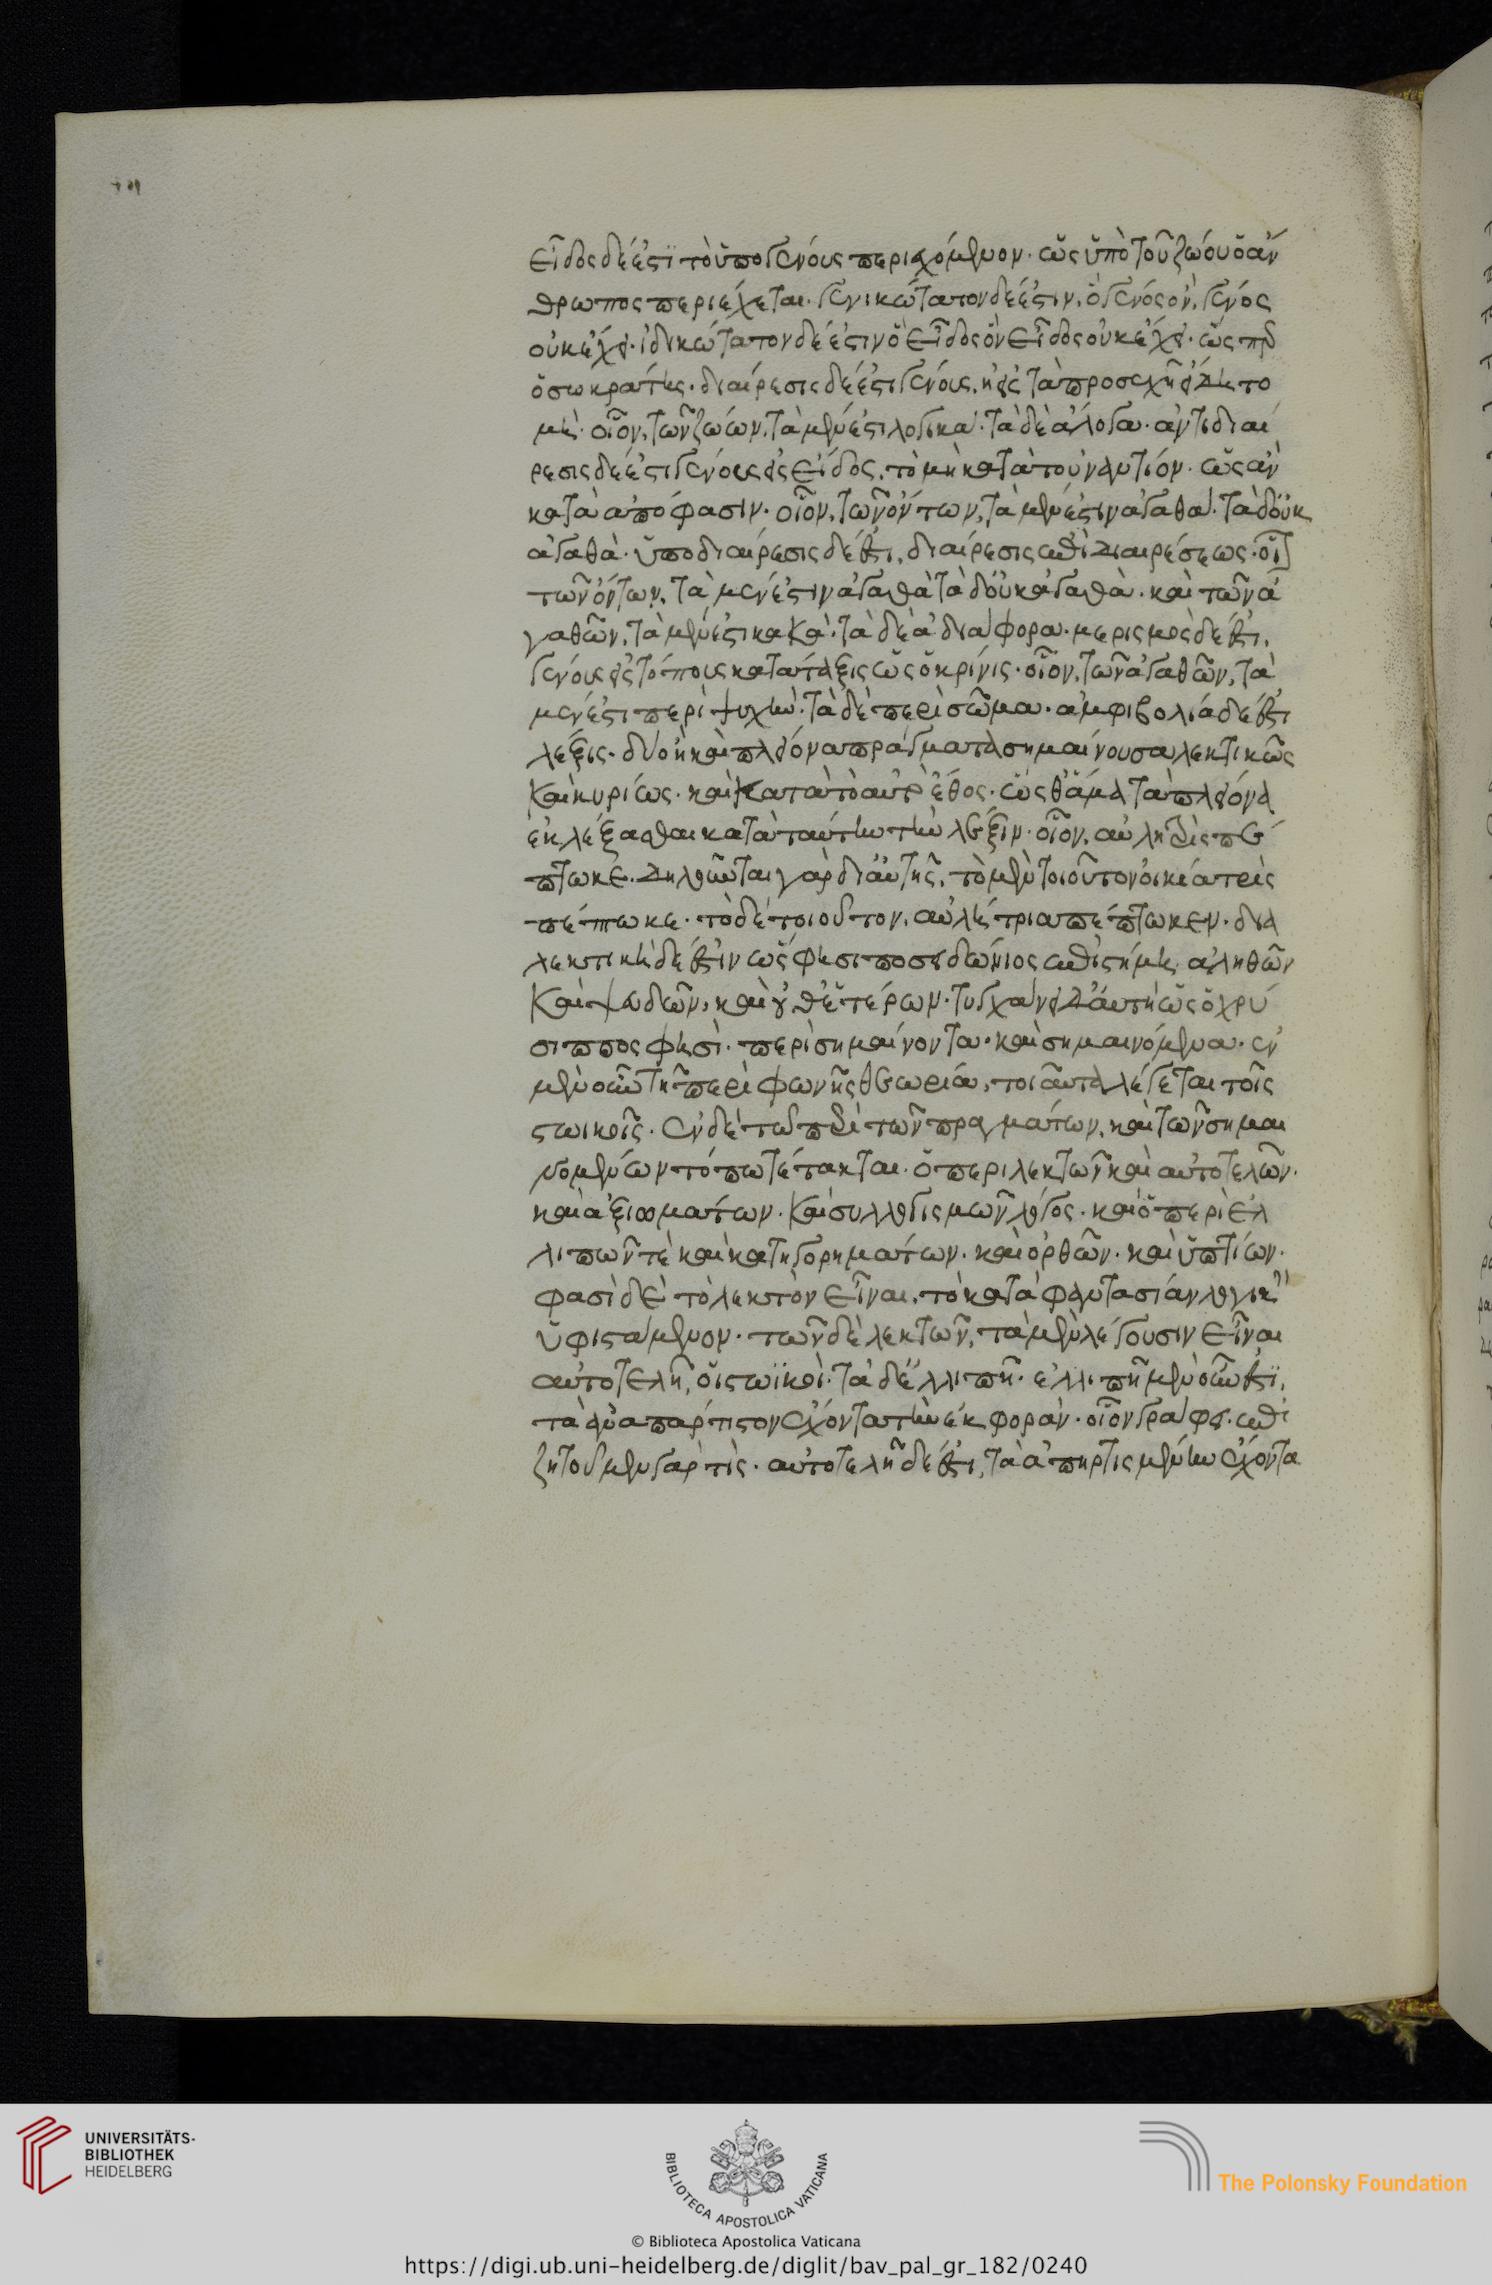 εἶδος δέ ἐστι τὸ ὑπὸ γένους περιεχόμενον· ὡς ὑπὸ τοῦ ζώου ὁ ἄν
θρωπος περιέχεται. γενικώτατον δέ ἐστιν, ὃ γένος ὂν, γένος
οὐκ ἔχει· ἰδικώτατον δέ ἐστιν ὃ εἶδος ὂν εἶδος οὐκ ἔχει· ὥσπερ
ὁ σωκράτης· διαίρεσις δέ ἐστι γένους, ἡ εἰς τὰ προσεχῆ εἴδη το
μὴ· οἷον, τῶν ζώων, τὰ μέν ἐστι λογικά· τὰ δὲ ἄλογα· ἀντιδιαί
ρεσις δέ ἐστι γένους εἰς εἶδος, τὸ μὴ κατὰ τοὐναντίον· ὡς ἂν
κατὰ ἀπόφασιν· οἷον, τῶν ὄντων, τὰ μέν ἐστιν ἀγαθά· τὰ δ' οὐκ
ἀγαθὰ· ὑποδιαίρεσις δέ ἐστι, διαίρεσις ἐπὶ διαιρέσεως· οἷον
τῶν ὄντων, τὰ μέν ἐστιν ἀγαθὰ τὰ δ' οὐκ ἀγαθὰ· καὶ τῶν ἀ
γαθῶν, τὰ μέν ἐστι κακὰ· τὰ δὲ ἀδιάφορα· μερισμὸς δέ ἐστι,
γένους εἰς τόπους κατάταξις ὡς ὁ κρίνις· οἷον, τῶν ἀγαθῶν, τὰ
μέν ἐστι περὶ ψυχὴν· τὰ δὲ περὶ σῶμα· ἀμφιβολία δέ ἐστι
λέξις· δύο ἢ καὶ πλείονα πράγματα σημαίνουσα λεκτικῶς
καὶ κυρίως· καὶ κατὰ τὸ αὐτὸ ἔθος· ὥσθ' ἅμα τὰ πλείονα
ἐκλέξασθαι κατὰ ταύτην τὴν λέξιν· οἷον, αὐλητρὶς πέ
πτωκε. δηλοῦνται γὰρ δι' αὐτῆς, τὸ μὲν τοιοῦτον οἰκία τρὶς
πέπτωκε· τὸ δὲ τοιοῦτον, αὐλήτρια πέπτωκεν· δια
λεκτικὴ δέ ἐστιν ὥς φησι ποσειδώνιος ἐπιστήμη ἀληθῶν
καὶ ψευδῶν, καὶ οὐθετέρων· τυγχάνει δ' αὕτη ὡς ὁ χρύ
σιππος φησὶ· περὶ σημαίνοντα· καὶ σημαινόμενα· ἐν
μὲν οὖν τῇ περὶ φωνῆς θεωρία, τοιαῦτα λέγεται τοῖς
στωικοῖς. ἐν δὲ τῶ περὶ τῶν πραγμάτων, καὶ τῶν σημαι
νομένων τόπω τέτακται· ὁ περὶ λεκτῶν καὶ αὐτοτελῶν·
καὶ ἀξιωμάτων· καὶ συλλογισμῶν λόγος· καὶ ὁ περὶ ἐλ
λιπῶν τὲ καὶ κατηγορημάτων· καὶ ὀρθῶν· καὶ ὑπτίων·
φασὶ δὲ τὸ λεκτὸν εἶναι, τὸ κατὰ φαντασίαν λογικὴν
ὑφιστάμενον· τῶν δὲ λεκτῶν, τὰ μὲν λέγουσιν εἶναι
αὐτοτελῆ, οἱ στωϊκοὶ· τὰ δ' ἐλλιπῆ· ἐλλιπῆ μὲν οὖν ἐστϊ,
τὰ ἀναπάρτιστον ἔχοντα τὴν ἐκφορὰν· οἷον γράφει· ἐπι
ζητοῦμεν γὰρ τὶς· αὐτοτελῆ δέ ἐστι, τὰ ἀπηρτισμένην ἔχοντα
UNIVERSITÄTS-
BIBLIOTHEK
HEIDELBERG
BIBLIOTECA APOSTOLICA VATICANA
The Polonsky Foundation
© Biblioteca Apostolica Vaticana
https://digi.ub.uni-heidelberg.de/diglit/bav_pal_gr_182/0240